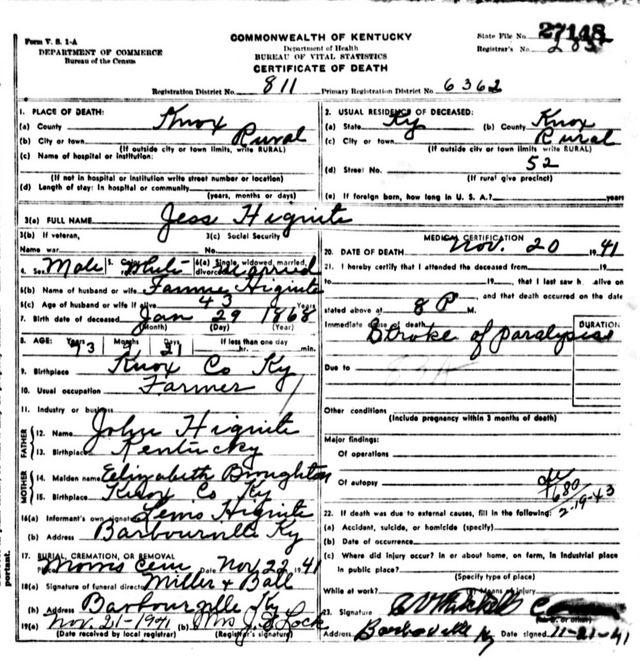 Form V. S. 1-A
DEPARTMENT OF COMMERCE
Bureau of the Census
COMMONWEALTH OF KENTUCKY
Department of Health
BUREAU OF VITAL STATISTICS
CERTIFICATE OF DEATH
State File No. 27148
Registrar's No. 283
Registration District No. 811 Primary Registration District No. 6362
1. PLACE OF DEATH:
(a) County Knox
(b) City or town Rural
(If outside city or town limits, write RURAL)
(c) Name of hospital or institution:
(If not in hospital or institution write street number or location)
(d) Length of stay: In hospital or community
(years, months or days)
2. USUAL RESIDENCE OF DECEASED:
(a) State Ky (b) County Knox
(c) City or town Rural
(If outside city or town limits, write RURAL)
(d) Street No. 52
(If rural give precinct)
(e) If foreign born, how long in U. S. A.? years
3(a) FULL NAME Jess Hignite
3(b) If veteran, 3(c) Social Security
Name war No.
4. Sex Male 5. Color White 6(a) Single, widowed, married, divorced Married
6(b) Name of husband or wife Fannie Hignite
6(c) Age of husband or wife if alive 43 Years
7. Birth date of deceased Jan 29 1868
(Month) (Day) (Year)
8. AGE: Years Months Days If less than one day
73 21 hr. min.
9. Birthplace Knox Co Ky
10. Usual occupation Farmer
11. Industry or business
FATHER
12. Name John Hignite
13. Birthplace Kentucky
MOTHER
14. Maiden name Elizabeth Broughton
15. Birthplace Knox Co Ky
16(a) Informant's own signature Hignite
(b) Address Barbourville Ky
17. BURIAL, CREMATION, OR REMOVAL
Place Morris Cem Date Nov 22 1941
18(a) Signature of funeral director Miller & Ball
(b) Address Barbourville Ky
19(a) Nov. 21-1941 (b) Mrs J. Lock
(Date received by local registrar) (Registrar's signature)
MEDICAL CERTIFICATION
20. DATE OF DEATH Nov. 20 1941
21. I hereby certify that I attended the deceased from 19
to 19, that I last saw h. alive on
, and that death occurred on the date
stated above at 8 P M.
Immediate cause of death DURATION
Stroke of Paralysis
Due to
Other conditions
(Include pregnancy within 3 months of death)
Major findings:
Of operations
Of autopsy
2-19-43
22. If death was due to external causes, fill in the following:
(a) Accident, suicide, or homicide (specify)
(b) Date of occurrence
(c) Where did injury occur? in or about home, on farm, in industrial place
in public place?
(Specify type of place)
While at work? Means of injury
23. Signature
Address Barbourville Ky Date signed 11-21-41
portant.